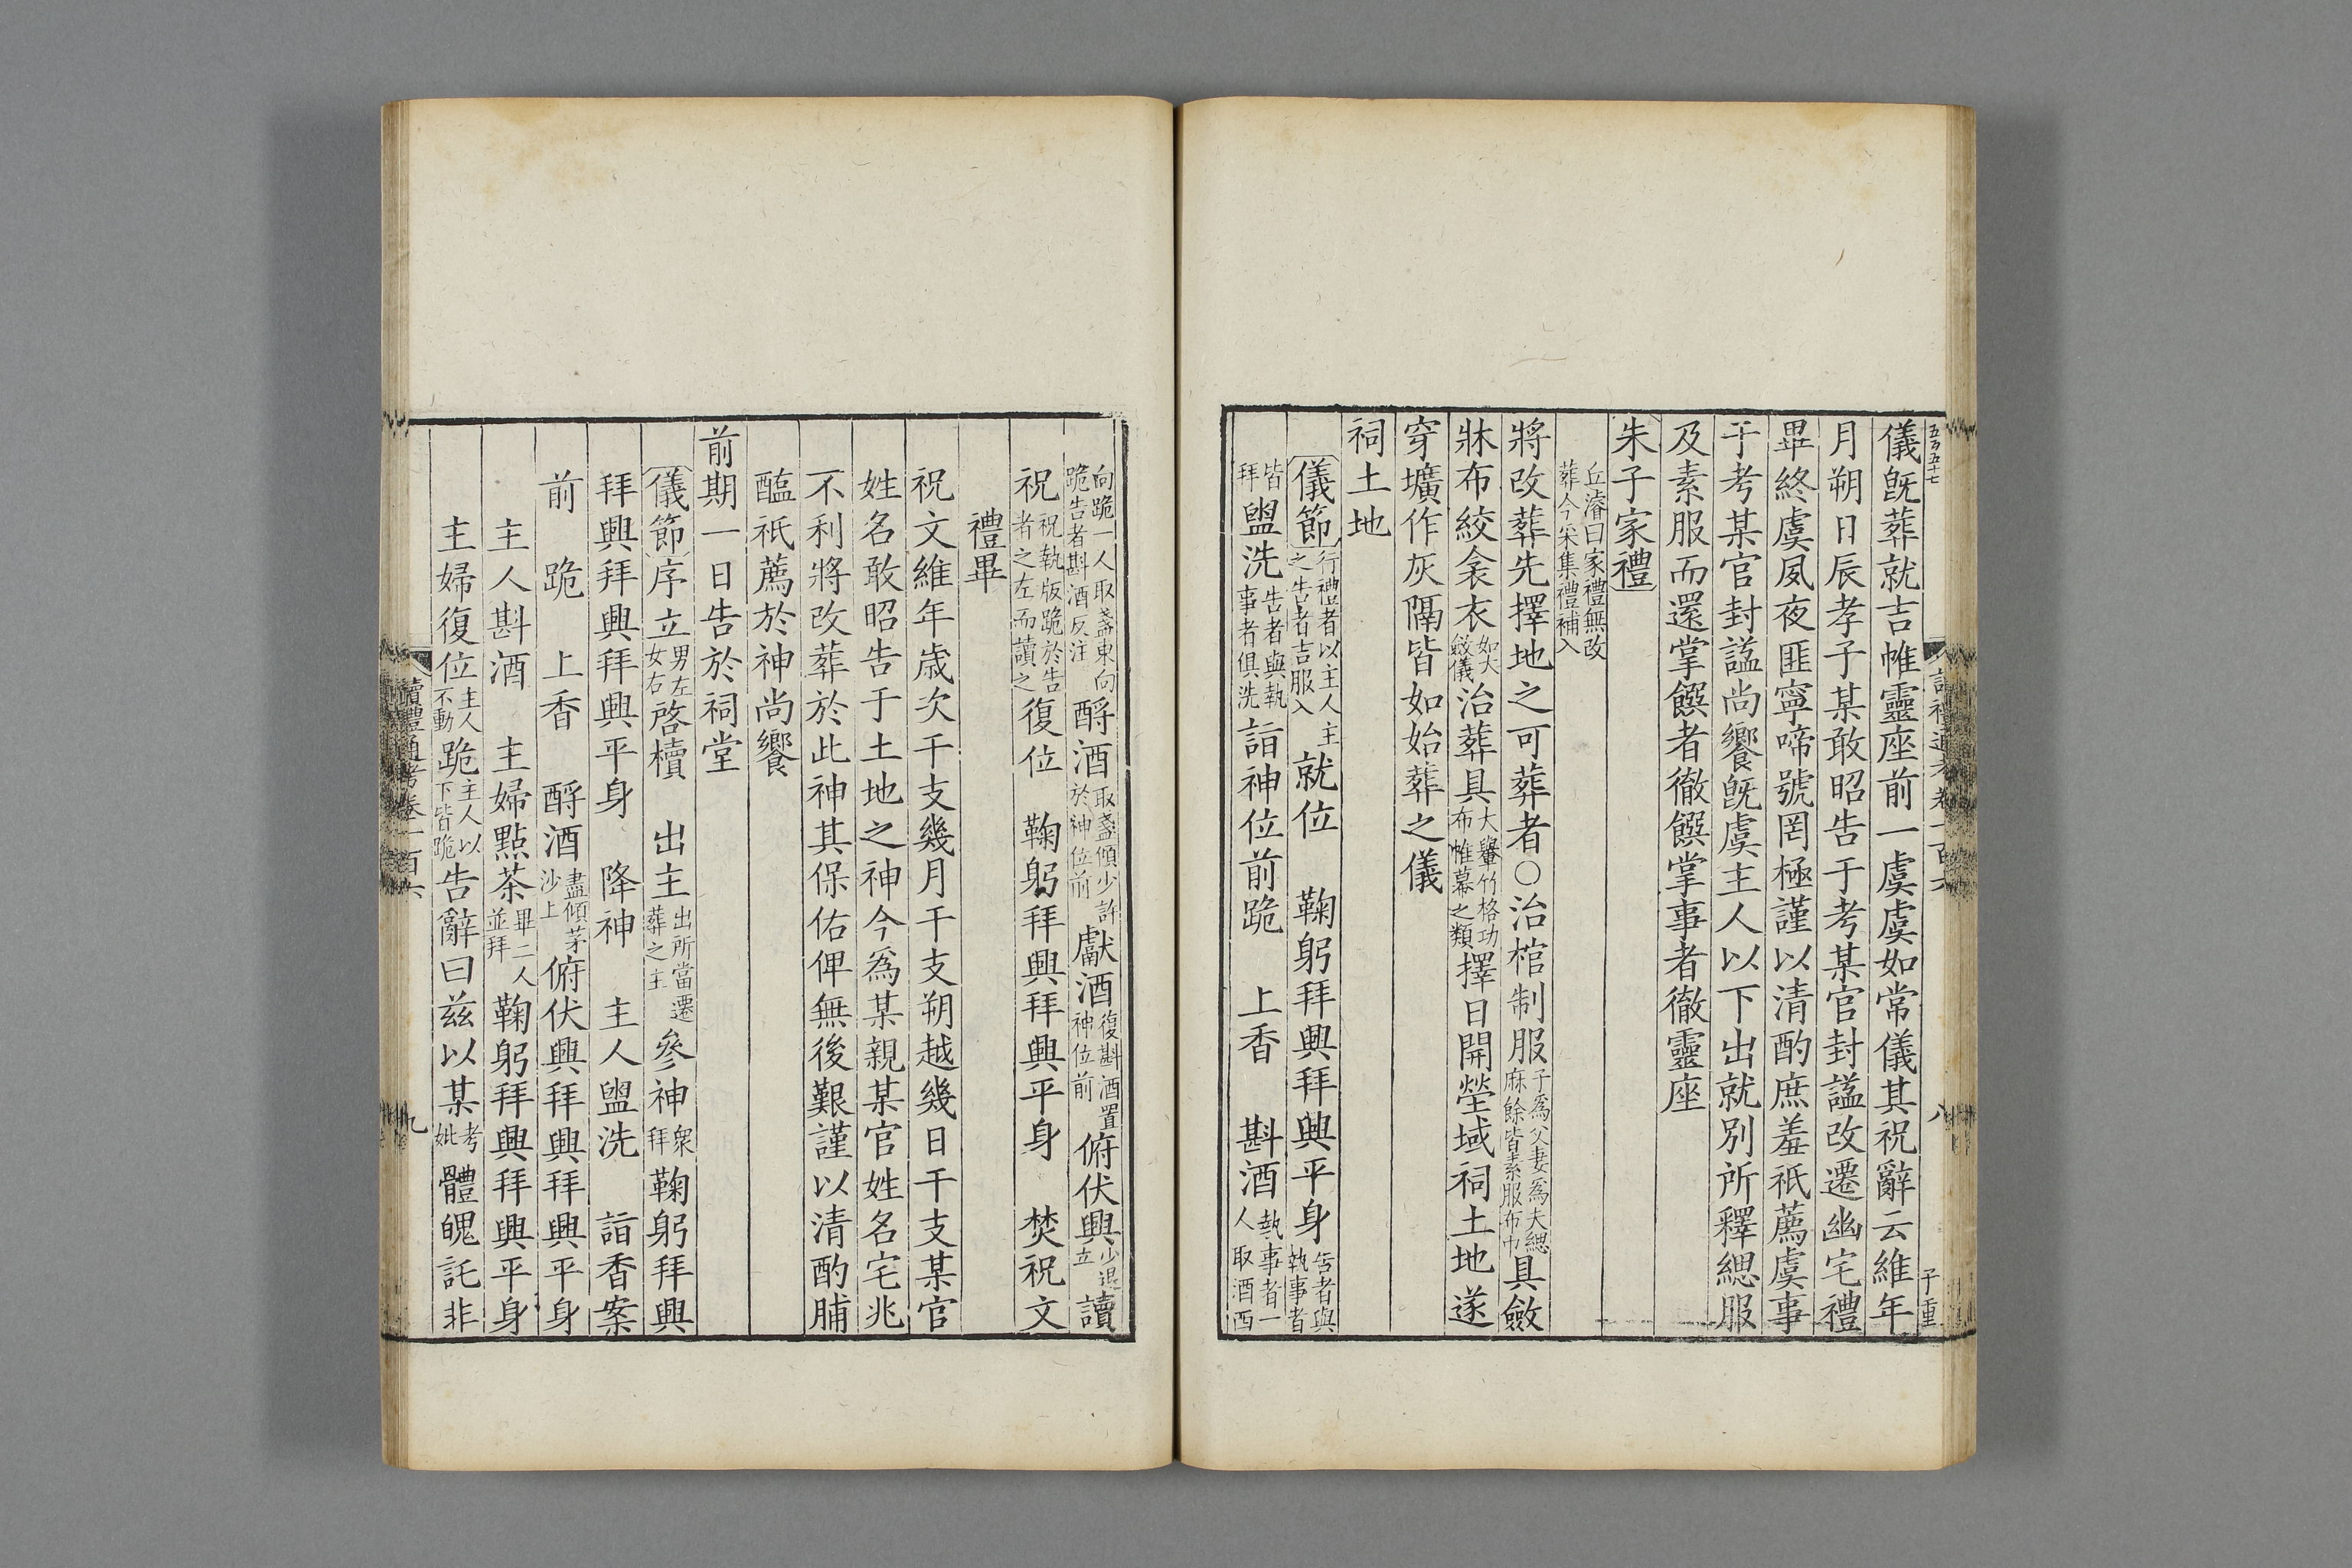 五百五十七
讀禮通考卷一百六
八
子重
儀旣葬就吉帷靈座前一虞虞如常儀其祝辭云維年
月朔日辰孝子某敢昭告于考某官封謚改遷幽宅禮
畢終虞夙夜匪寧啼號罔極謹以清酌庶羞祇薦虞事
于考某官封謚尚饗旣虞主人以下出就別所釋緦服
及素服而還掌饌者徹饌掌事者徹靈座
朱子家禮
丘濬曰家禮無改
葬今采集禮補入
將改葬先擇地之可葬者○治棺制服子爲父妻爲夫緦麻餘皆素服布巾具斂
牀布絞衾衣如大斂儀治葬具大轝竹格功布帷幕之類擇日開塋域祠土地遂
穿壙作灰隔皆如始葬之儀
祠土地
儀節行禮者以主人之告者吉服入主就位　鞠躬拜興拜興平身告者與執事者
皆拜盥洗告者與執事者俱洗詣神位前跪　上香　斟酒執事者一人取酒西
向跪一人取盞東向跪告者斟酒反注酹酒取盞傾少許於神位前獻酒復斟酒置神位前俯伏興少退立讀
祝祝執版跪於告者之左而讀之復位　鞠躬拜興拜興平身　焚祝文
禮畢
祝文維年歳次干支幾月干支朔越幾日干支某官
姓名敢昭告于土地之神今爲某親某官姓名宅兆
不利將改葬於此神其保佑俾無後艱謹以清酌脯
醢祇薦於神尚饗
前期一日告於祠堂
儀節序立男左女右啓櫝　出主出所當遷葬之主參神衆拜鞠躬拜興
拜興拜興拜興平身　降神　主人盥洗　詣香案
前　跪　上香　酹酒盡傾茅沙上俯伏興拜興拜興平身
主人斟酒　主婦點茶畢二人並拜鞠躬拜興拜興平身
主婦復位主人不動跪主人以下皆跪告辭曰兹以某考妣體魄託非
讀禮通考卷一百六
九